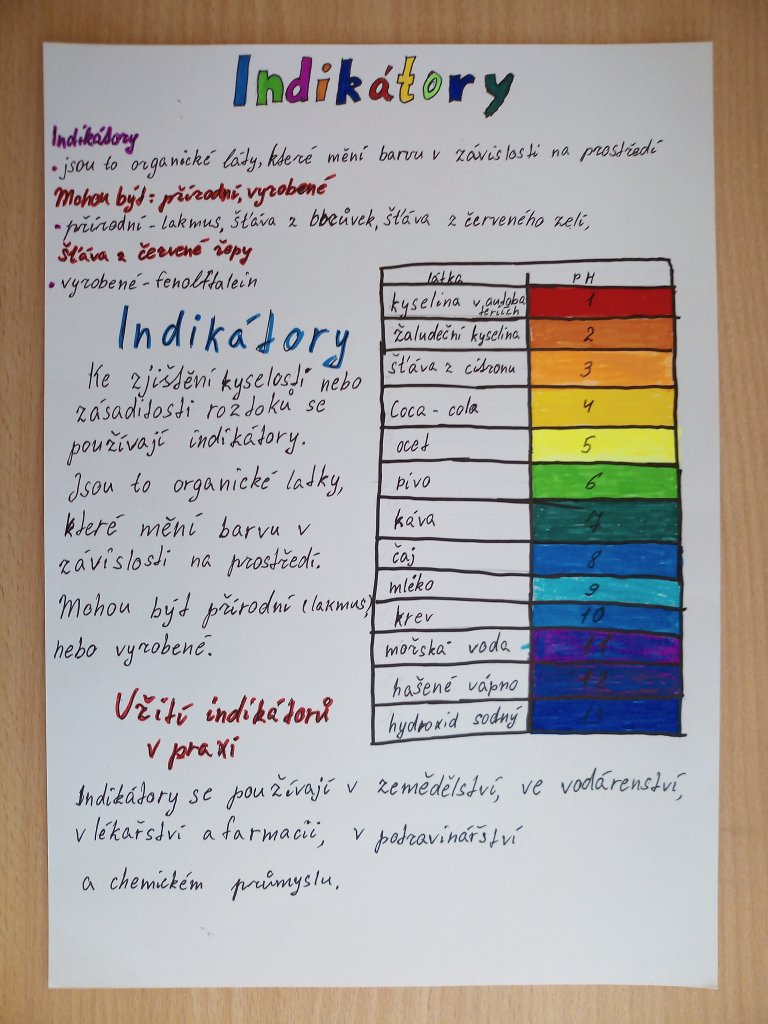 Indikátory
Indikátory
• jsou to organické láty, které mění barvu v závislosti na prostředí
Mohou být: přírodní, vyrobené
• přírodní - lakmus, šťáva z borůvek, šťáva z červeného zelí,
šťáva z červené řepy
• vyrobené - fenolftalein
Indikátory
Ke zjištění kyselosti nebo
zásaditosti roztoků se
používají indikátory.
Jsou to organické latky,
které mění barvu v
závislosti na prostředí.
Mohou být přírodní (lakmus)
nebo vyrobené.
látka PH
kyselina v autobateriích 1
žaludeční kyselina 2
šťáva z citronu 3
Coca - cola 4
ocet 5
pivo 6
káva 7
čaj 8
mléko 9
krev 10
mořská voda 11
hašené vápno 12
hydroxid sodný 13
Užití indikátorů
v praxi
Indikátory se používají v zemědělství, ve vodárenství,
v lékařství a farmacii, v potravinářství
a chemickém průmyslu.